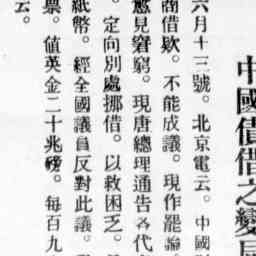 中國債借之變
六月十三號。北京電云。中國
借欵。不能成議。現作罷論。
愈見窘窮。現唐總理通告各代
。定向別處挪借。以救困乏。
紙幣。經全國議員反對此議。
票。値英金二十兆磅。每百九
云。